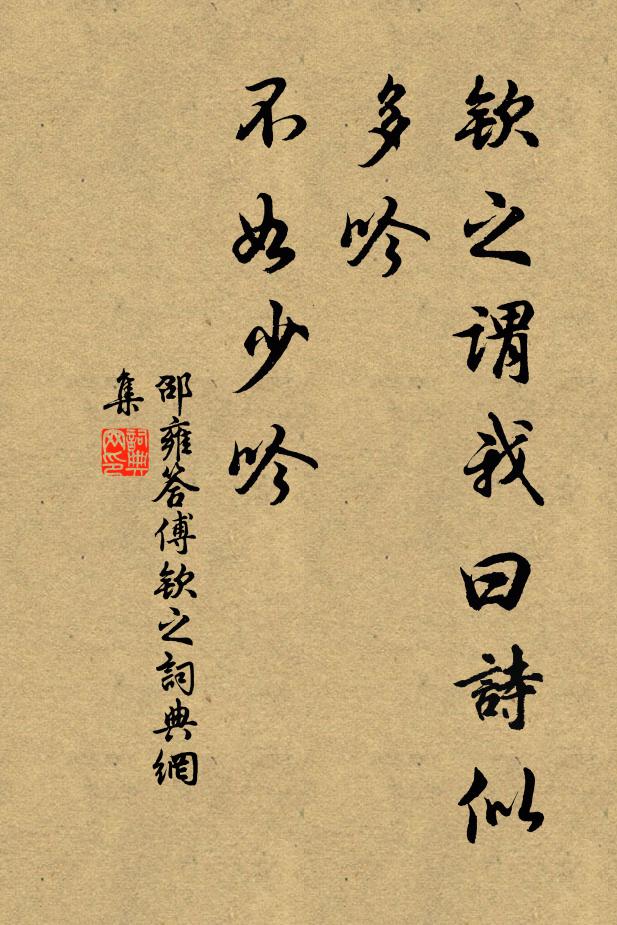 欽之謂我曰詩似
多吟
不如少吟
邵雍答傅欽之詞典網
集
詞典
网印